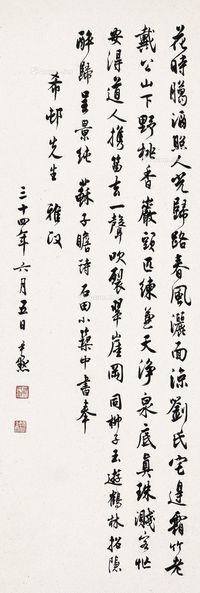 花時臘酒照人光歸路春風灑面涼劉氏宅邊霜竹老
戴公山下野桃香巖頭匹練兼天淨泉底真珠濺客忙
安得道人攜笛去一聲吹裂翠崖岡同柳子玉遊鶴林招隱
醉歸呈景純 蘇子瞻詩石田小築中書奉
希邨先生 雅政
三十四年六月五日尹默